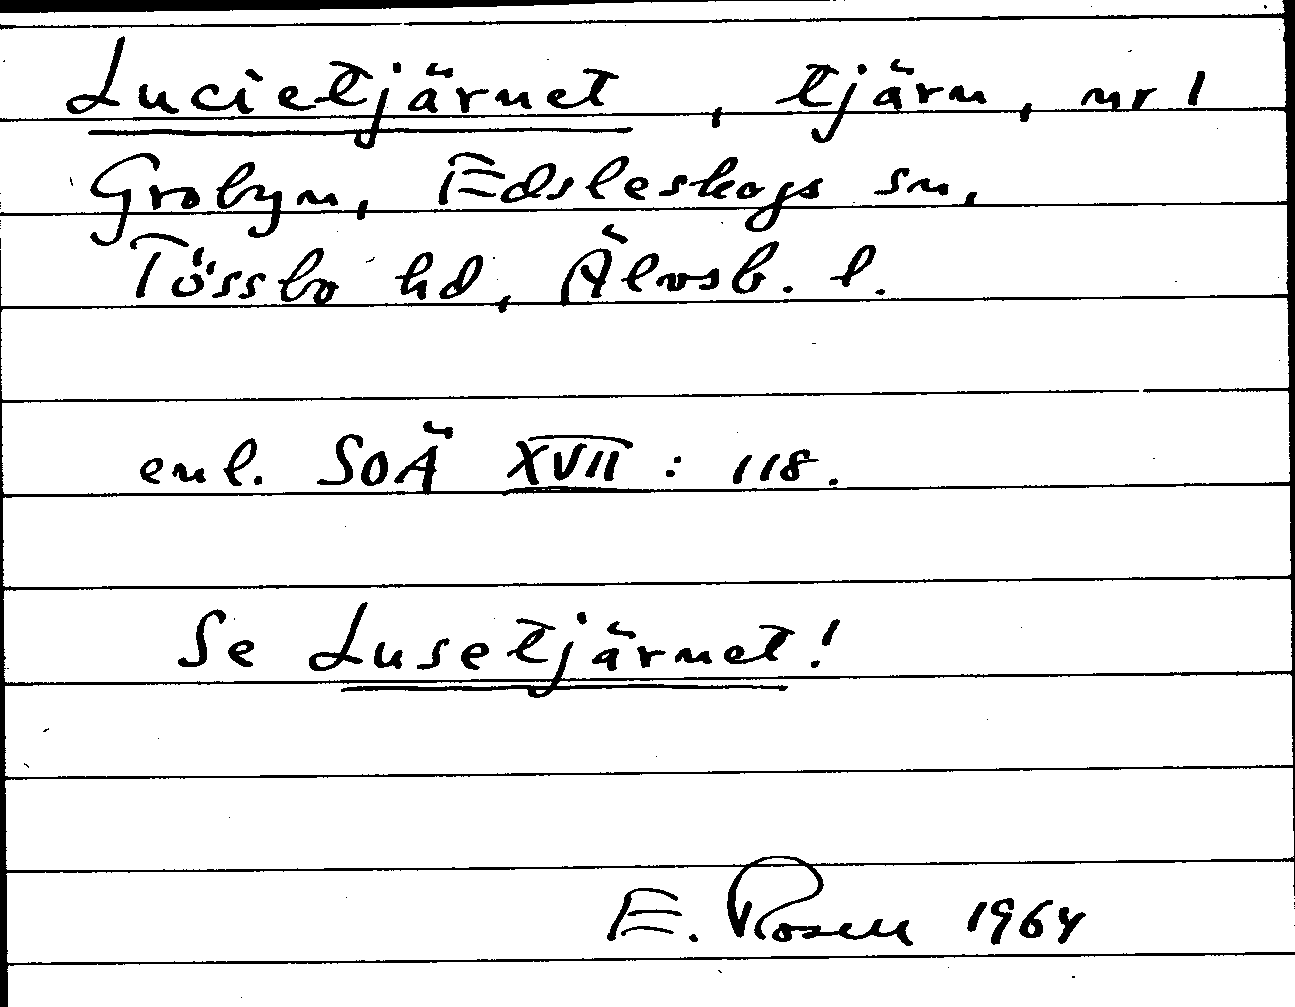 Lucietjärnet, tjärn, nr 1
Grobyn, Edsleskogs sn,
Tössbo hd, Älvsb. l.
enl. SOÄ XVII : 118.
Se Lusetjärnet!
E. Rosell 1964